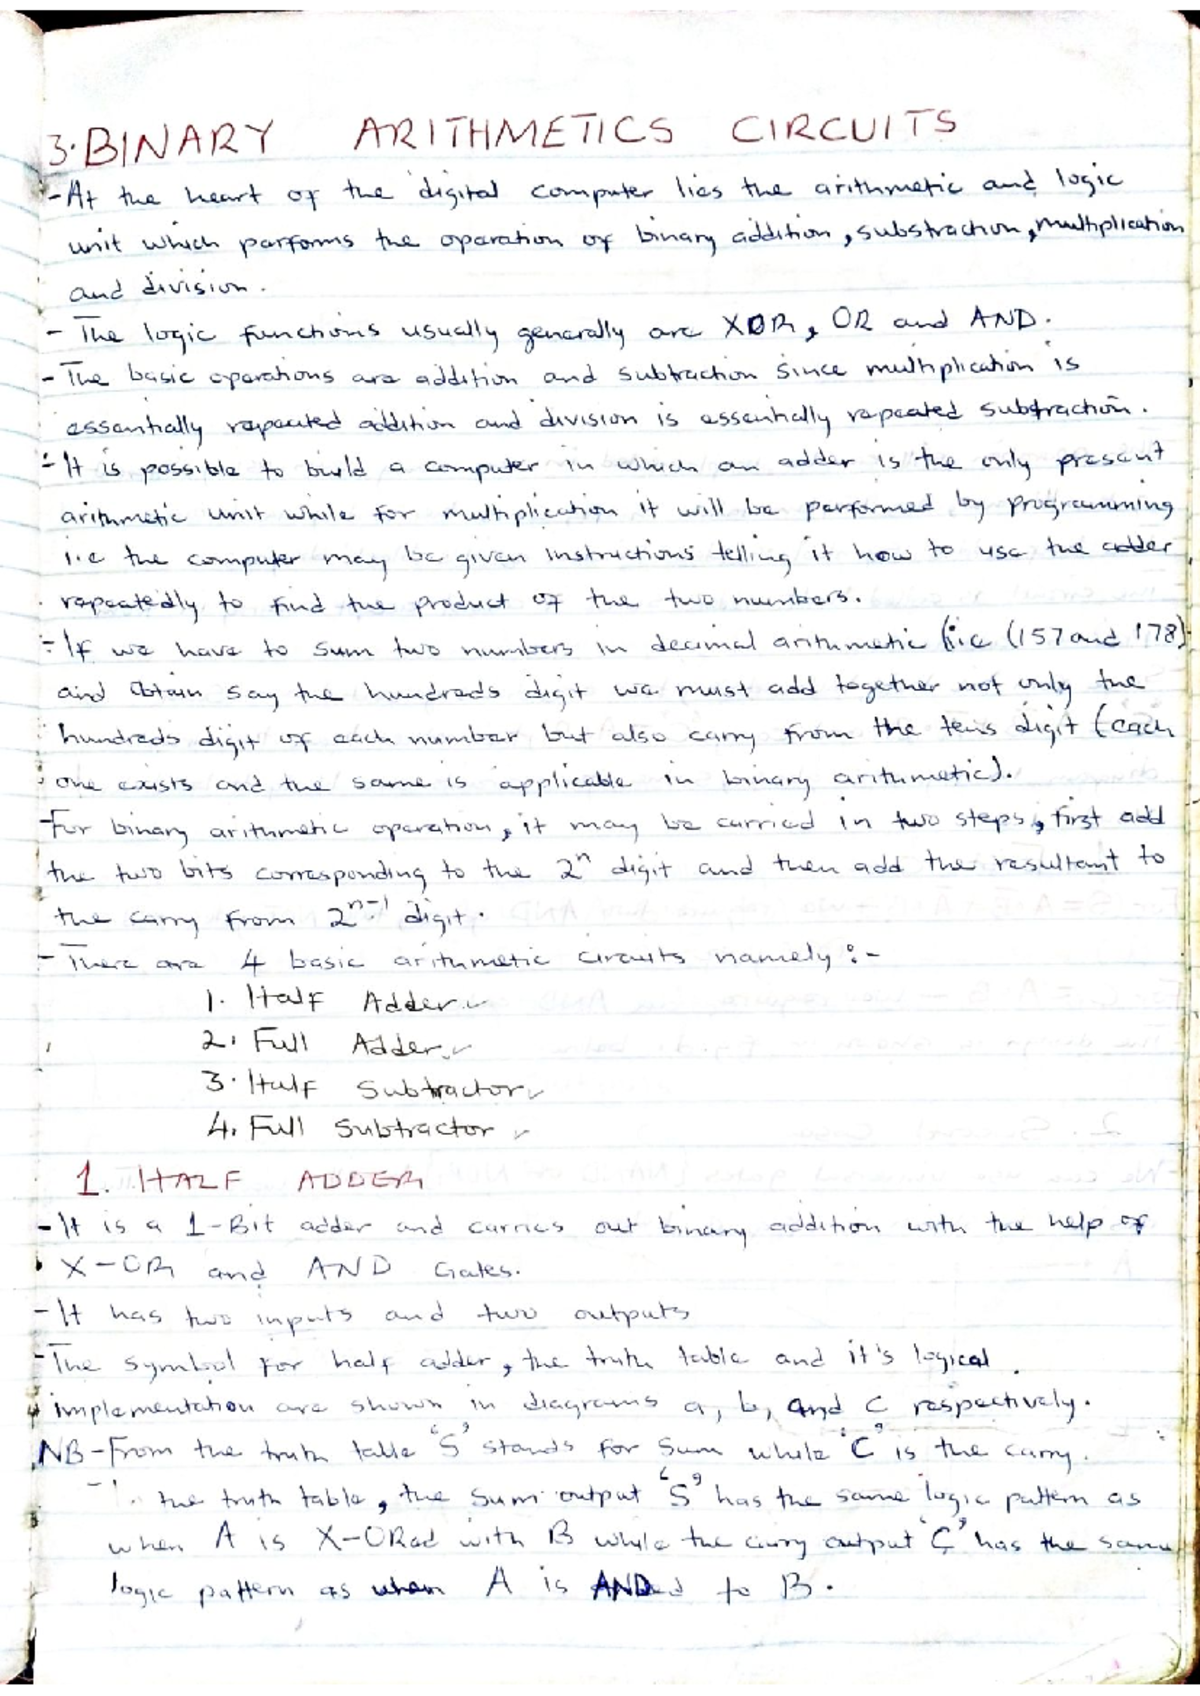 3. BINARY ARITHMETICS CIRCUITS
- At the heart of the digital computer lies the arithmetic and logic
unit which parforms the oparation of binary addition, substraction, multiplication
and division.
- The logic functions usually generally are XOR, OR and AND.
- The basic oparations are addition and subtraction since multiplication is
essentially repeated addition and division is essentially repeated subtraction.
- It is possible to build a computer in which an adder is the only present
arithmetic unit while for multiplication it will be performed by programming
i.e the computer may be given instructions telling it how to use the adder
repeatedly to find the product of the two numbers.
- If we have to sum two numbers in decimal arithmetic (i.e (157 and 178)
and obtain say the hundreds digit we must add together not only the
hundreds digit of each number but also carry from the tens digit (each
one exists and the same is applicable in binary arithmetic).
- For binary arithmetic operation, it may be carried in two steps, first add
the two bits corresponding to the 2ⁿ digit and then add the resultant to
the carry from 2ⁿ⁻¹ digit.
- There are 4 basic arithmetic circuits namely :-
1. Half Adder ✓
2. Full Adder ✓
3. Half Subtractor ✓
4. Full Subtractor ✓
1. HALF ADDER
- It is a 1-Bit adder and carries out binary addition with the help of
X-OR and AND Gates.
- It has two inputs and two outputs
- The symbol for half adder, the truth table and it's logical
implementation are shown in diagrams a, b, and c respectively.
NB - From the truth table 'S' stands for Sum while 'C' is the carry.
- In the truth table, the sum output 'S' has the same logic pattern as
when A is X-ORed with B while the carry output 'C' has the same
logic pattern as when A is ANDed to B.